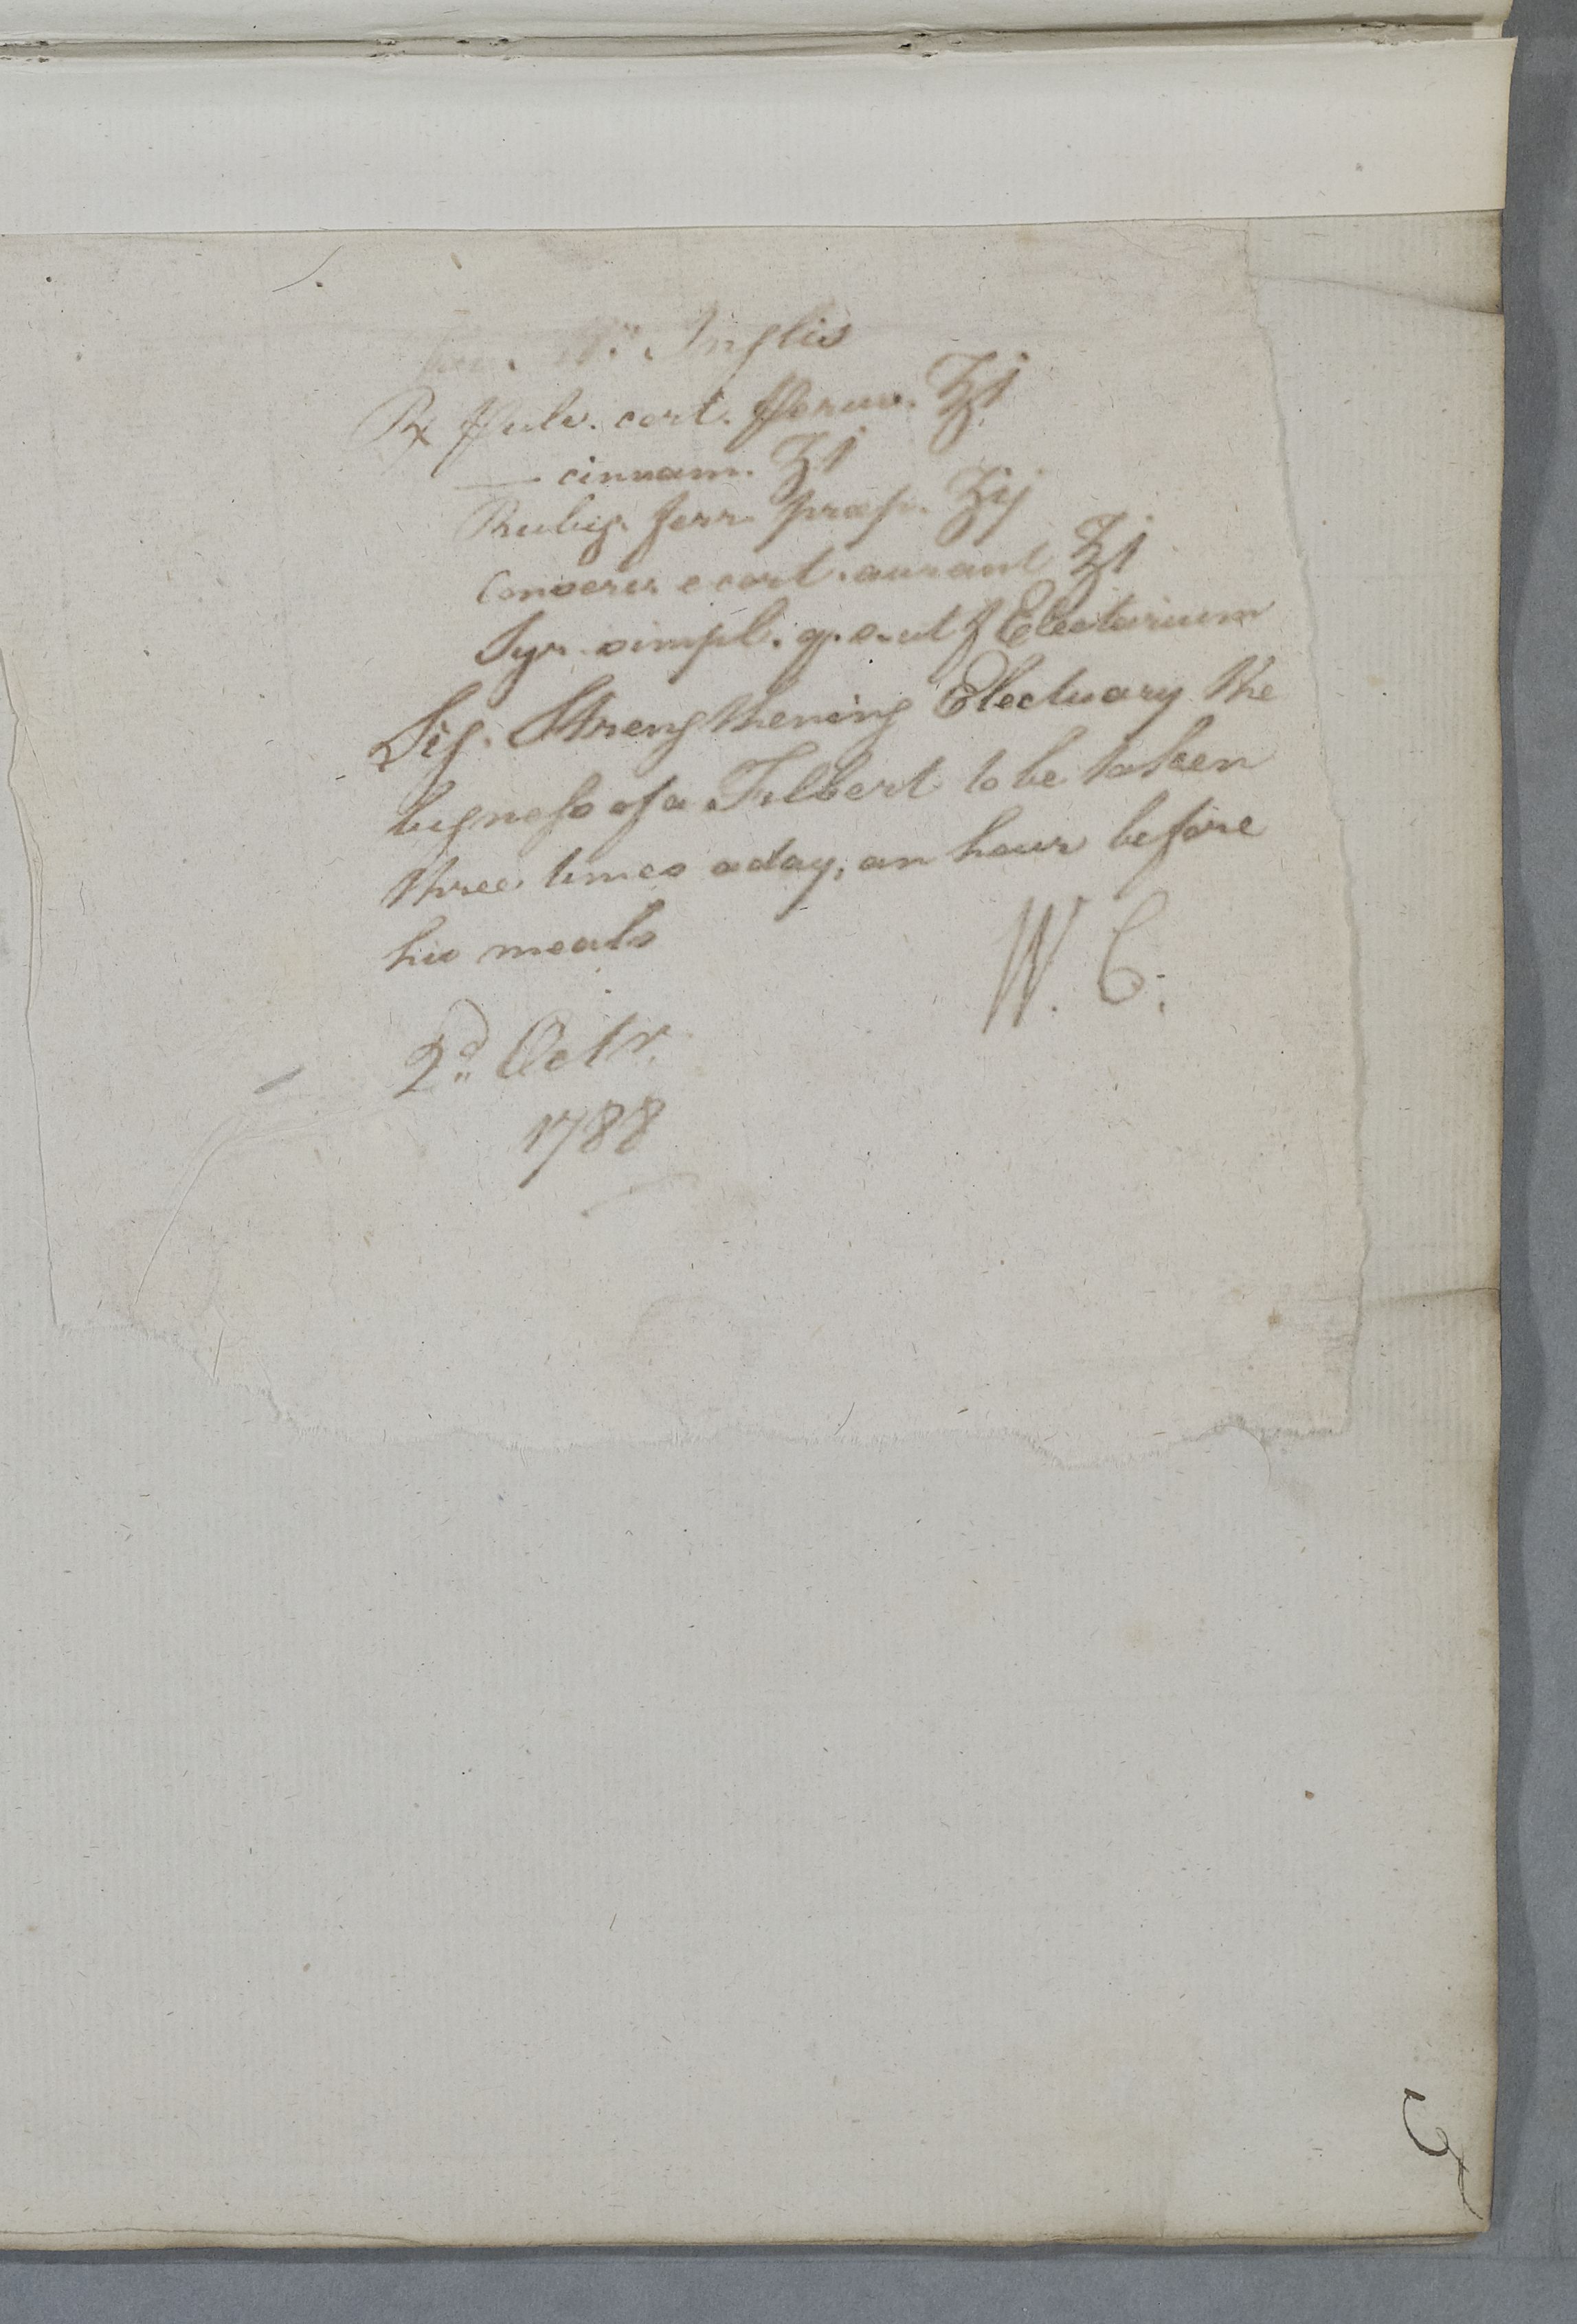 Inglis
℞ Pulv. cort. Peruv. ℥j
— cinnam. ʒj
Rubig. ferr. præp. ʒij
Conserv. e cort. aurant ℥j
Syr. simpl. q. s. ut f Electarium
Sig. Strengthening Electuary The
bigness of a Filbert to be taken
three times a day, an hour before
his meals
W. C.
2d. Octr.
1788